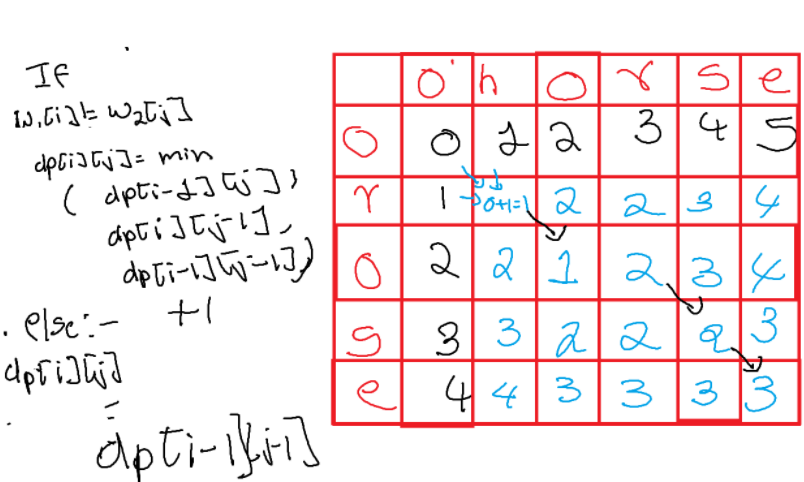 If
w1[i] != w2[j]
dp[i][j] = min
( dp[i-1][j],
dp[i][j-1],
dp[i-1][j-1])
+1
. else:-
dp[i][j]
=
dp[i-1][j-1]
0 h o r s e
0 0 1 2 3 4 5
r 1 0+1=1 2 2 3 4
o 2 2 1 2 3 4
s 3 3 2 2 2 3
e 4 4 3 3 3 3